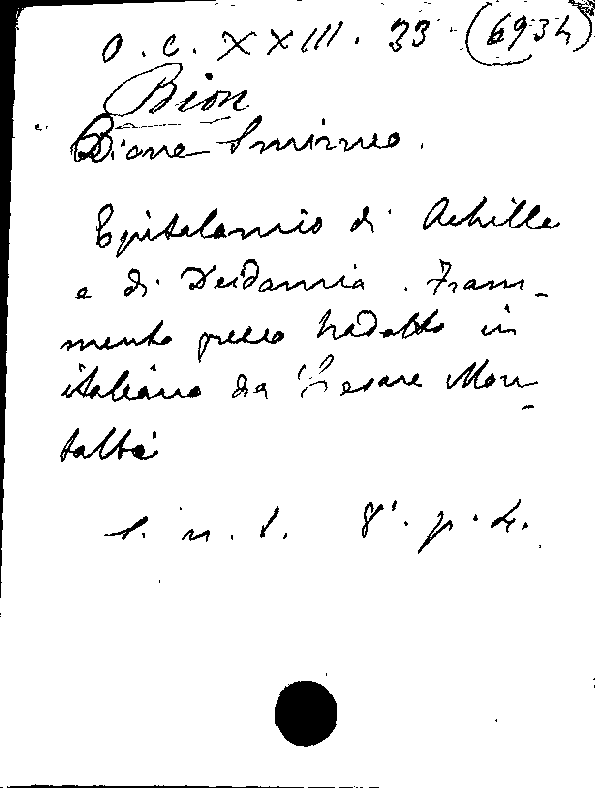 O. C. XXIII. 33 (6934)
Bion
Bione Smirneo.
Epitalamio di Achille
e di Deidamia. Fram-
mento greco tradotto in
italiano da Cesare Mon-
talba
s. n. t. 8°. p. 4.